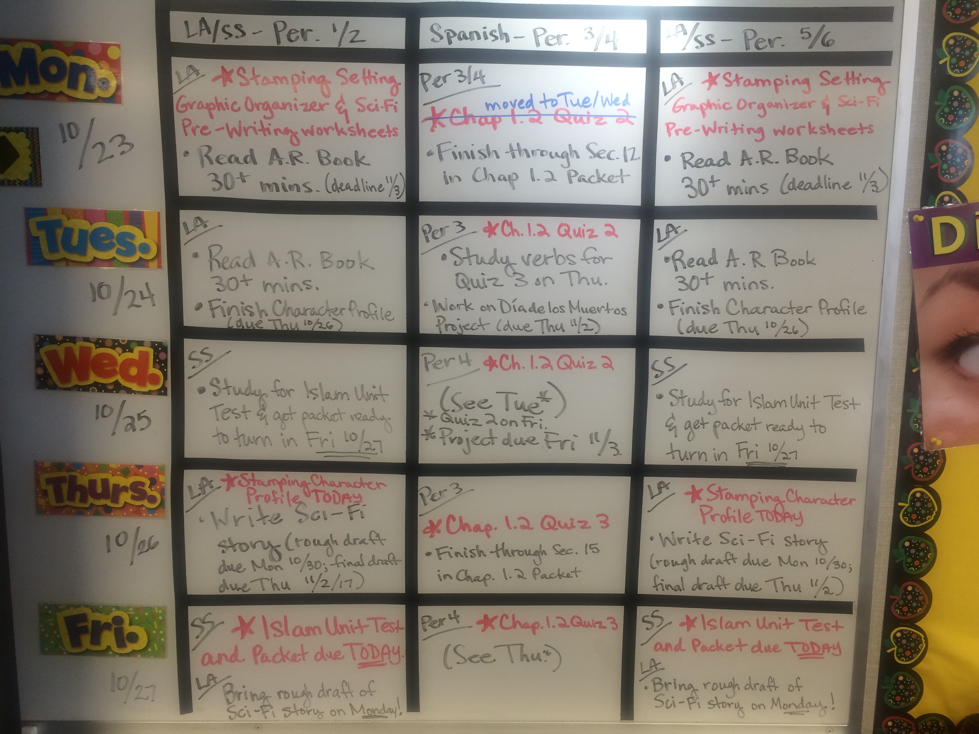 LA/SS - Per. 1/2
Spanish - Per. 3/4
A/SS - Per. 5/6
Mon.
10/23
LA *Stamping Setting
Graphic Organizer & Sci-Fi
Pre-Writing worksheets
• Read A.R. Book
30+ mins. (deadline 11/3)
Per 3/4
moved to Tue/Wed
*Chap 1.2 Quiz 2
• Finish through Sec. 12
in Chap 1.2 Packet
LA *Stamping Setting
Graphic Organizer & Sci-Fi
Pre-Writing worksheets
• Read A.R. Book
30+ mins (deadline 11/3)
Tues.
10/24
LA
• Read A.R. Book
30+ mins.
• Finish Character Profile
(due Thu 10/26)
Per 3 *Ch. 1.2 Quiz 2
• Study verbs for
Quiz 3 on Thu.
• Work on Día de los Muertos
Project (due Thu 11/2)
LA
• Read A.R Book
30+ mins.
• Finish Character Profile
(due Thu 10/26)
D
Wed.
10/25
SS
• Study for Islam Unit
Test & get packet ready
to turn in Fri 10/27
Per 4 *Ch. 1.2 Quiz 2
(See Tue*)
* Quiz 2 on Fri.
* Project due Fri 11/3
SS
• Study for Islam Unit Test
& get packet ready to
turn in Fri 10/27
Thurs.
10/26
LA *Stamping Character
Profile TODAY
• Write Sci-Fi
story (rough draft
due Mon 10/30; final draft
due Thu 11/2/17)
Per 3
*Chap. 1.2 Quiz 3
• Finish through Sec. 15
in Chap. 1.2 Packet
LA *Stamping Character
Profile TODAY
• Write Sci-Fi story
(rough draft due Mon 10/30;
final draft due Thu 11/2)
Fri.
10/27
SS *Islam Unit Test
and Packet due TODAY.
LA
• Bring rough draft of
Sci-Fi story on Monday!
Per 4 *Chap. 1.2 Quiz 3
(See Thu*)
SS *Islam Unit Test
and Packet due TODAY
LA
• Bring rough draft of
Sci-Fi story on Monday!